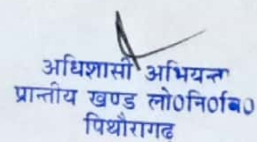 अधिशासी अभियन्ता
प्रान्तीय खण्ड लो०नि०वि०
पिथौरागढ़